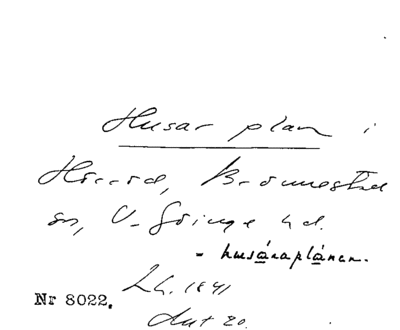 Husarplan i
Hörröd, Brönnestad
sn, V. Göinge hd.
- husáraplánen.
Lh. 1841
Nr 8022.
Akt 20.